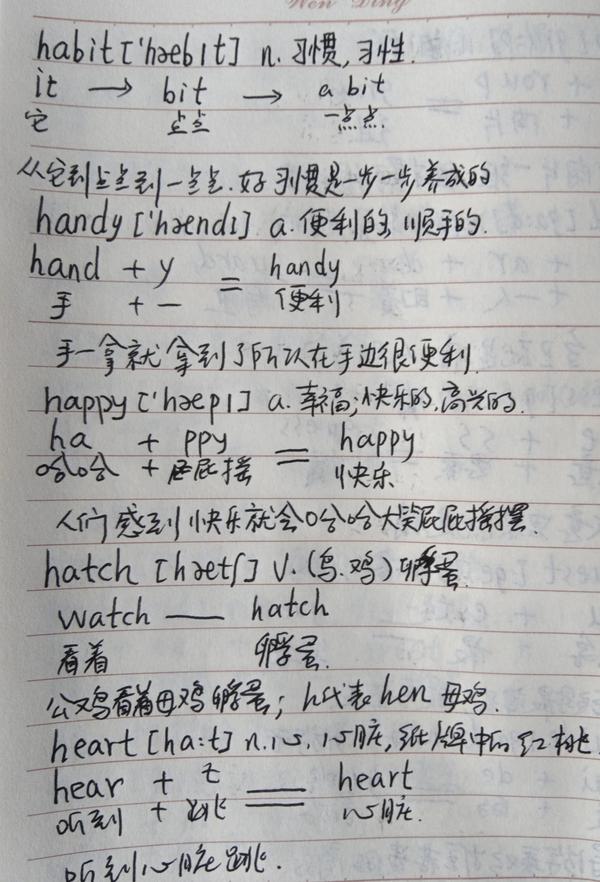 Wen Ding
habit ['hæbɪt] n. 习惯, 习性.
it → bit → a bit
它 点点 一点点.
从它到点点到一点点. 好习惯是一步一步养成的
handy ['hændɪ] a. 便利的, 顺手的.
hand + y = handy
手 + 一 便利
手一拿就拿到了所以在手边很便利.
happy ['hæpɪ] a. 幸福; 快乐的, 高兴的.
ha + ppy = happy
哈哈 + 屁屁摇 快乐
人们感到快乐就会哈哈大笑屁屁摇摆.
hatch [hætʃ] v. (鸟.鸡) 孵蛋.
watch — hatch
看着 孵蛋.
公鸡看着母鸡孵蛋; h代表hen 母鸡.
heart [ha:t] n. 心, 心脏, 纸牌中的红桃
hear + t = heart
听到 + 跳 心脏.
听到心脏跳.